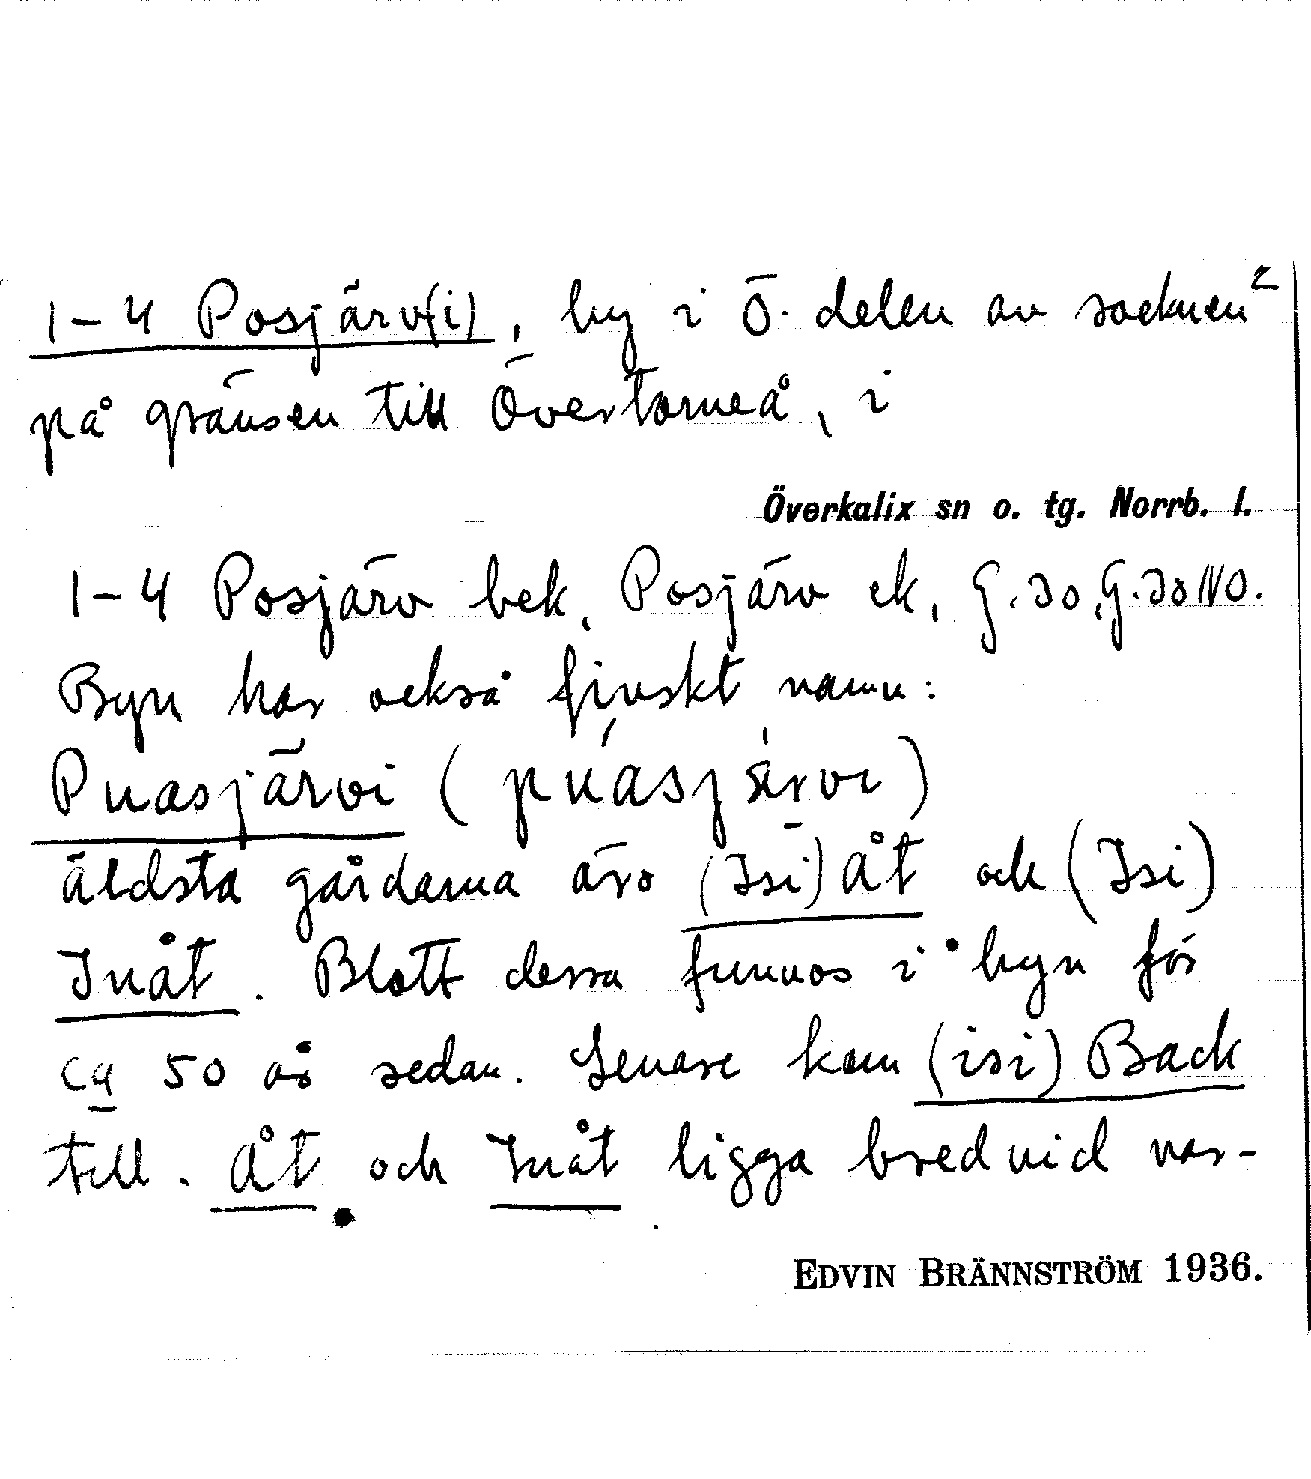 1-4 Posjärv(i), by i Ö. delen av socknen 2
på gränsen till Övertorneå, i
Överkalix sn o. tg. Norrb. l.
1-4 Posjärv bek, Posjärv ek, G.30, G.30 NO.
Byn har också finskt namn:
Puasjärvi (púasjärvi)
äldsta gårdarna äro (Isi) Åt och (Isi)
Inåt. Blott dessa funnos i byn för
ca 50 år sedan. Senare kom (isi) Back
till. Åt och Inåt ligga bredvid var-
EDVIN BRÄNNSTRÖM 1936.